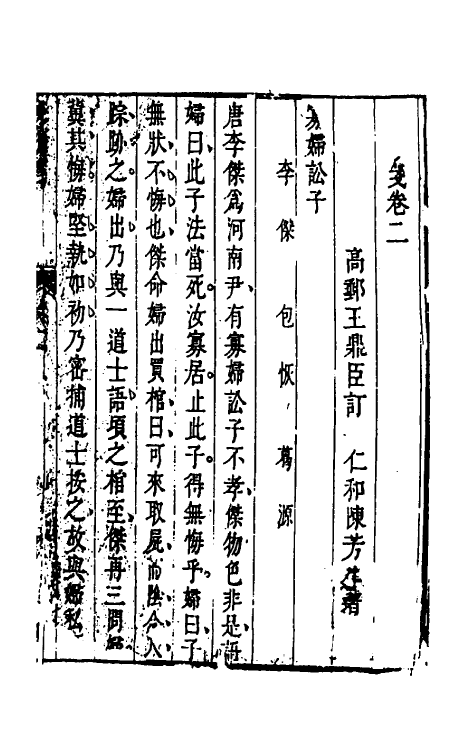 箋卷二
高郵王鼎臣訂　仁和陳芳生著
寡婦訟子
李傑　包恢　葛源
唐李傑爲河南尹有寡婦訟子不孝傑物色非是語
婦曰此子法當死汝寡居止此子得無悔乎婦曰子
無狀不悔也傑命婦出買棺曰可來取屍而陰令人
踪跡之婦出乃與一道士語頃之棺至傑再三問
冀其悔婦堅執如初乃密捕道士按之故與婦私